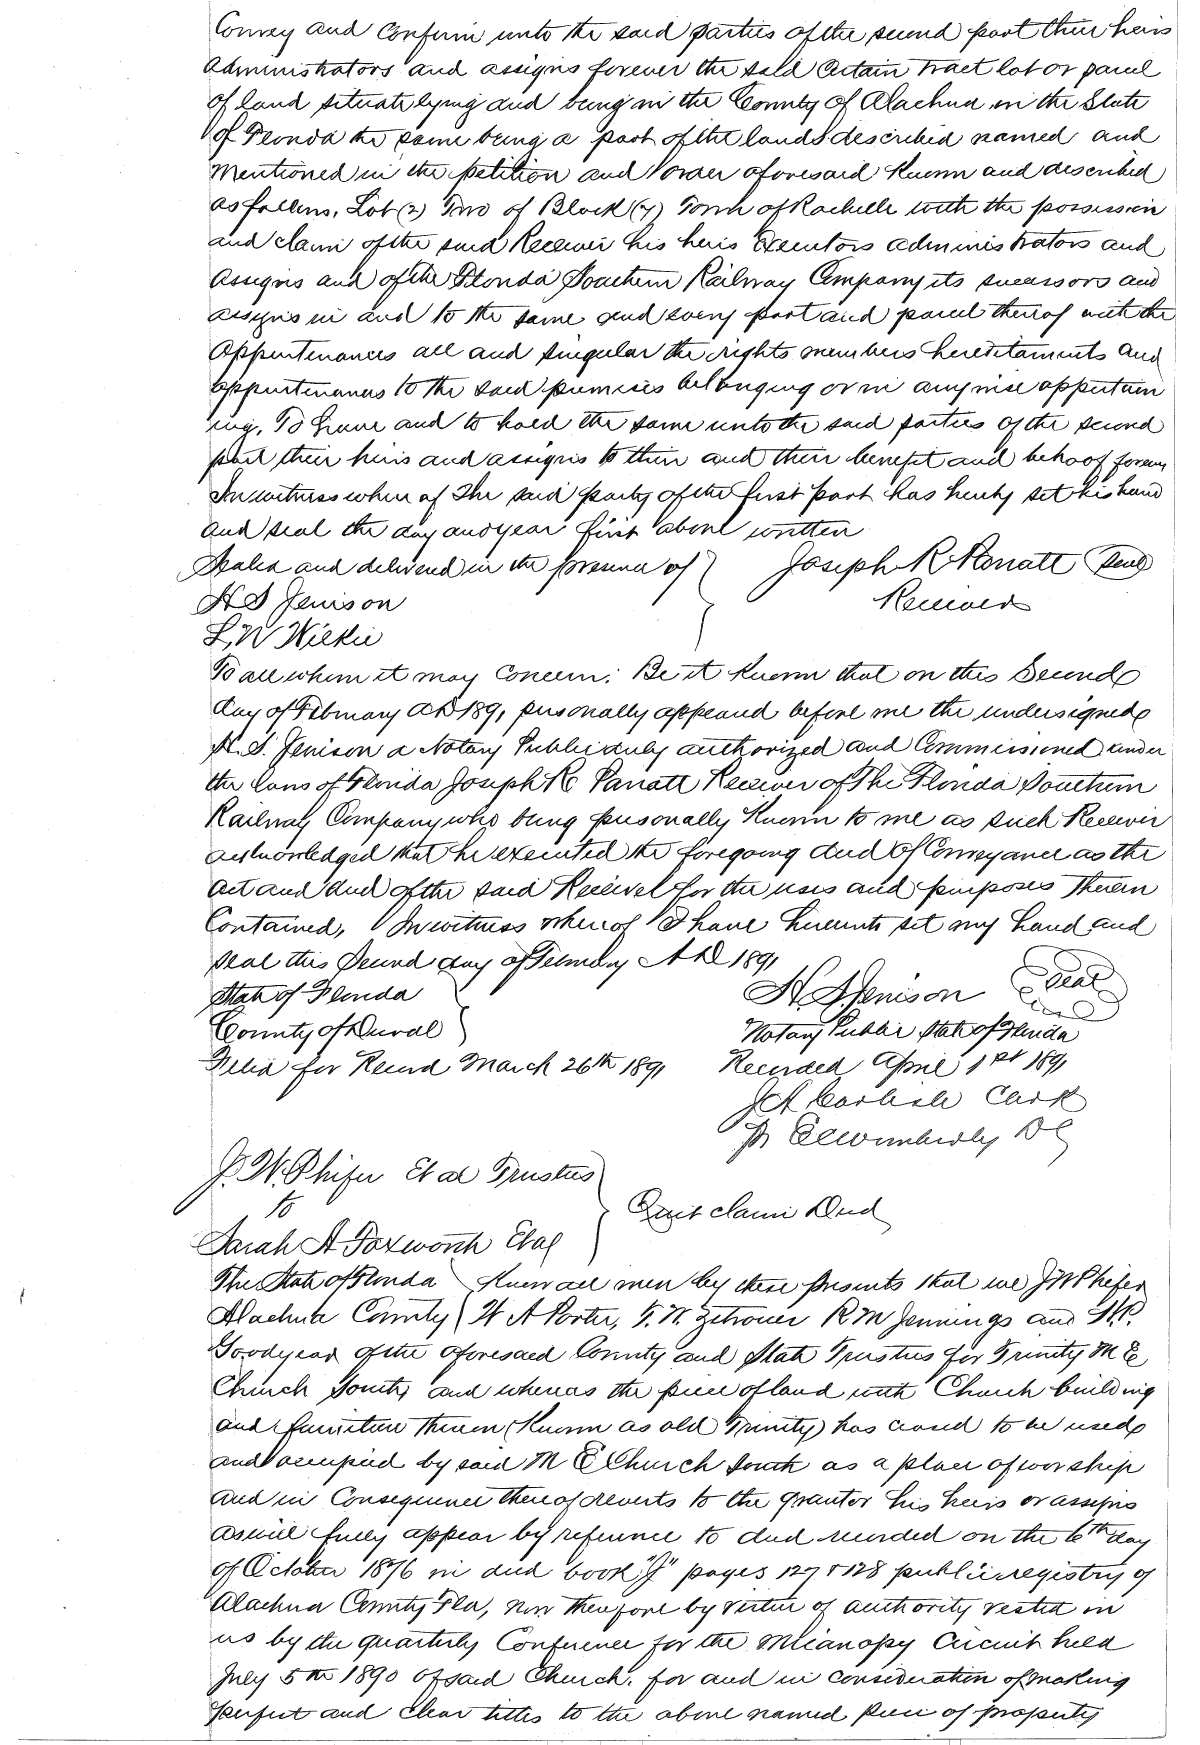 Convey and Confirm unto the said parties of the second part their heirs
administrators and assigns forever the said Certain tract lot or parcel
of land situate lying and being in the County of Alachua in the State
of Florida the same being a part of the lands described named and
mentioned in the petition and order aforesaid Known and described
as follows, Lot (2) Two of Block (7) Town of Rochelle with the possession
and claim of the said Receiver his heirs Executors administrators and
assigns and of the Florida Southern Railway Company its successors and
assigns in and to the same and every part and parcel thereof with the
appurtenances all and singular the rights members hereditaments and
appurtenances to the said premises belonging or in anywise appertain
ing, To have and to hold the same unto the said parties of the second
part their heirs and assigns to them and their benefit and behoof forever
In witness where of The said party of the first part has hereby set his hand
and seal the day and year first above written
Sealed and delivered in the presence of Joseph R Parrott Seal
H S Jenison Receiver
L, W Wilkie
To all whom it may Concern: Be it Known that on this Second
day of February AD 1891 personally appeared before me the undersigned
H. S. Jenison a Notary Public duly authorized and Commissioned under
the laws of Florida Joseph R Parrott Receiver of The Florida Southern
Railway Company who being personally Known to me as such Receiver
acknowledged that he executed the foregoing deed of Conveyance as the
act and deed of the said Receiver for the uses and purposes therein
Contained, In witness where of I have hereunto set my hand and
seal this Second day of February A D 1891
State of Florida H. S. Jenison Seal
County of Duval Notary Public State of Florida
Filed for Record March 26th 1891 Recorded April 1st 1891
J A Carlisle Clerk
Pr E C Wimberly D C
J. W. Phifer Et al Trustees
to Quit claim Deed
Sarah A Foxworth Et al
The State of Florida Know all men by these presents that we J W Phifer
Alachua County W A Porter, F. W. Zetrouer R M Jennings and H. P.
Goodyear of the aforesaid County and State Trustees for Trinity M E
Church South, and whereas the piece of land with Church building
and furniture therein (Known as old Trinity) has ceased to be used
and occupied by said M E Church South as a place of worship
and in Consequence thereof reverts to the grantor his heirs or assigns
as will fully appear by reference to deed recorded on the 6th day
of October 1876 in deed book "J" pages 127 & 128 public registry of
Alachua County Fla, now therefore by virtue of authority vested in
us by the quarterly Conference for the Micanopy Circuit held
July 5th 1890 of said Church. for and in consideration of making
perfect and clear titles to the above named piece of property